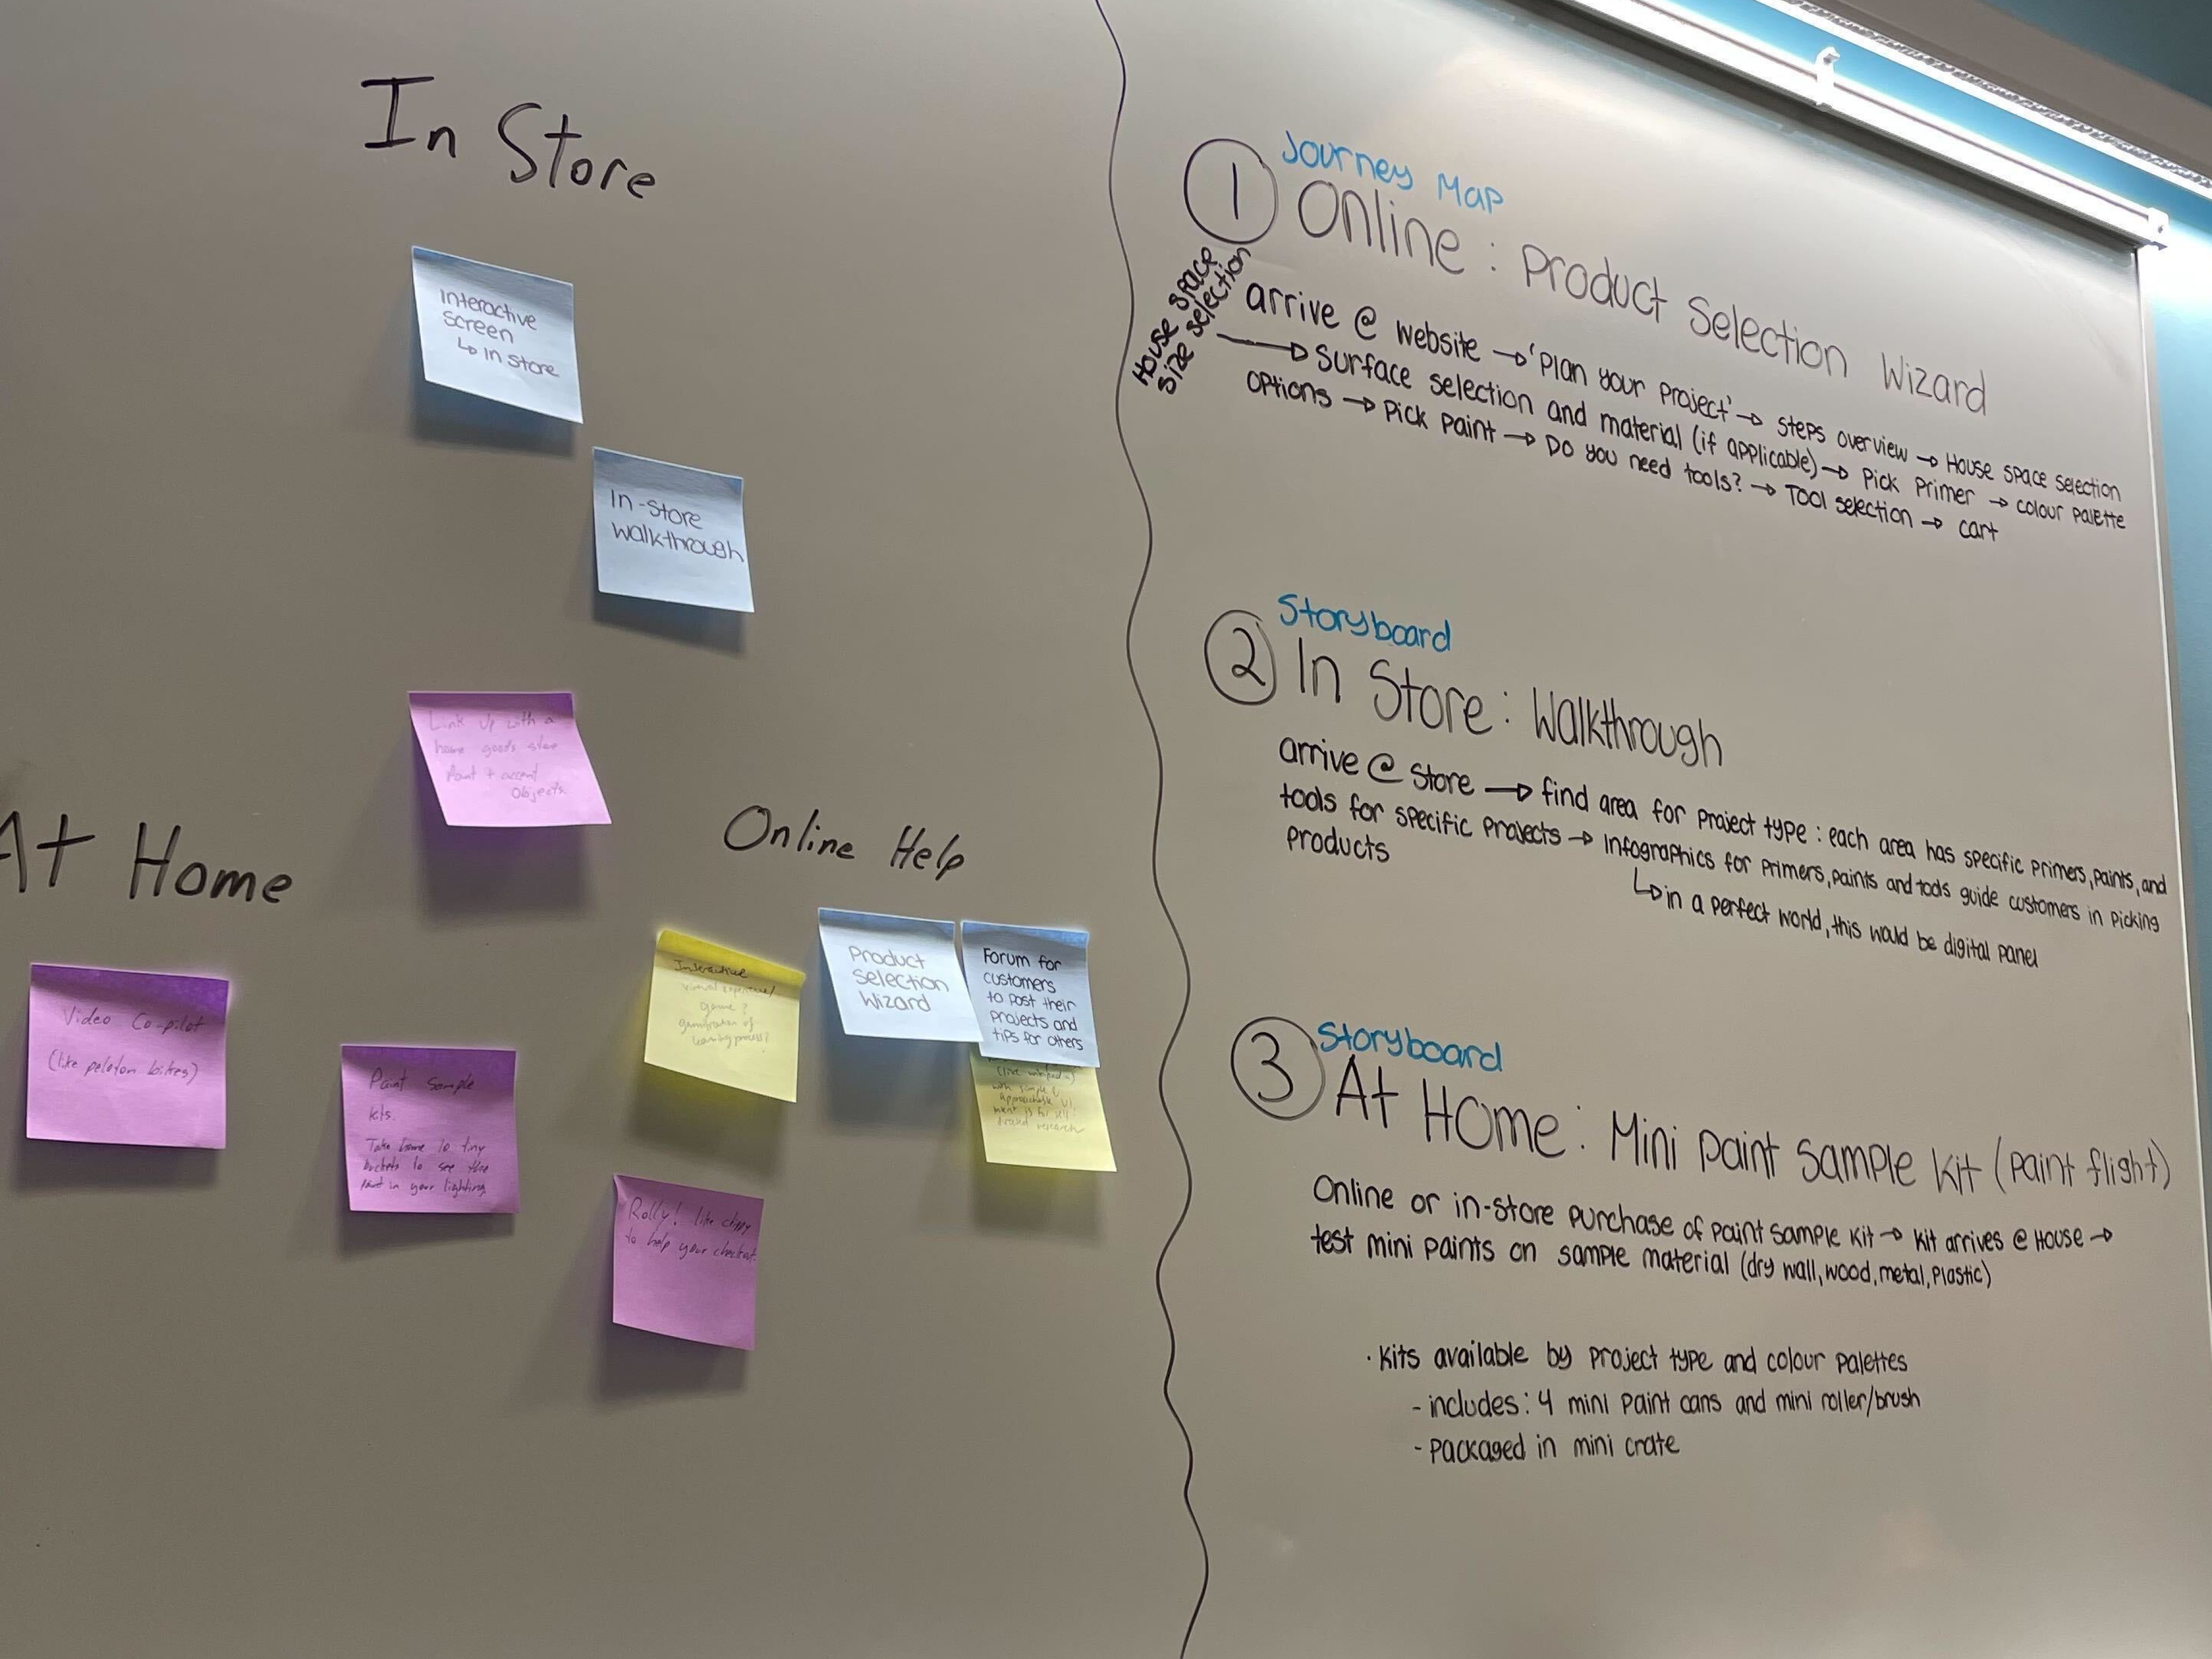 In Store
Interactive
screen
↳ in store
In-store
walkthrough
Link up with a
home goods store
Paint + accent
objects.
At Home
Video Co-pilot
(like peloton bikes)
Paint Sample
kits.
Take home 10 tiny
buckets to see the
paint in your lighting
Online Help
Interactive
game?
gamification of
learning process?
Product
Selection
Wizard
Forum for
customers
to post their
projects and
tips for others
with simple &
approachable UI
Rolly! like clippy
to help your checkout.
① Journey Map
Online: Product Selection Wizard
House space
size selection
arrive @ website → 'Plan your project' → steps overview → House space selection
→ Surface selection and material (if applicable) → Pick Primer → colour palette
options → Pick paint → Do you need tools? → Tool selection → cart
Storyboard
② In Store: Walkthrough
arrive @ store → find area for project type: each area has specific primers, paints, and
tools for specific projects → infographics for primers, paints and tools guide customers in picking
products
↳ in a perfect world, this would be digital panel
Storyboard
③ At Home: Mini paint sample kit (paint flight)
Online or in-store purchase of paint sample kit → kit arrives @ House →
test mini paints on sample material (dry wall, wood, metal, plastic)
· Kits available by project type and colour palettes
- includes: 4 mini paint cans and mini roller/brush
- packaged in mini crate